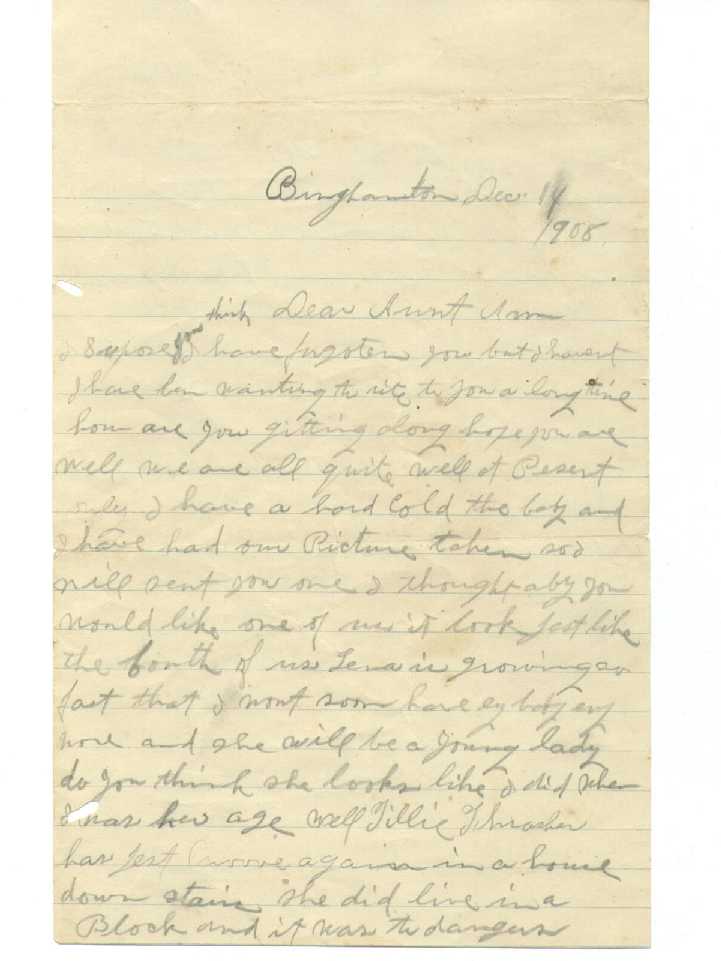 Binghamton Dec. 14
1908.
think Dear Aunt Ann
I Supose you I have forgoten you but I havent
I have ben wanting to rite to you a long time
how are you gitting along hope you are
well we are all quite well at Pesert
only I have a hard Cold the baby and
I have had our Picture taken so I
will sent you one I thought you
would like one of us it look jest like
the bouth of us Lena is growing so
fast that I wont soon have baby eny
more and she will be a young lady
do you think she looks like I did when
I was her age well Tillie Thrasher
has jest moove again in a house
down stairs she did live in a
Block and it was to dangers